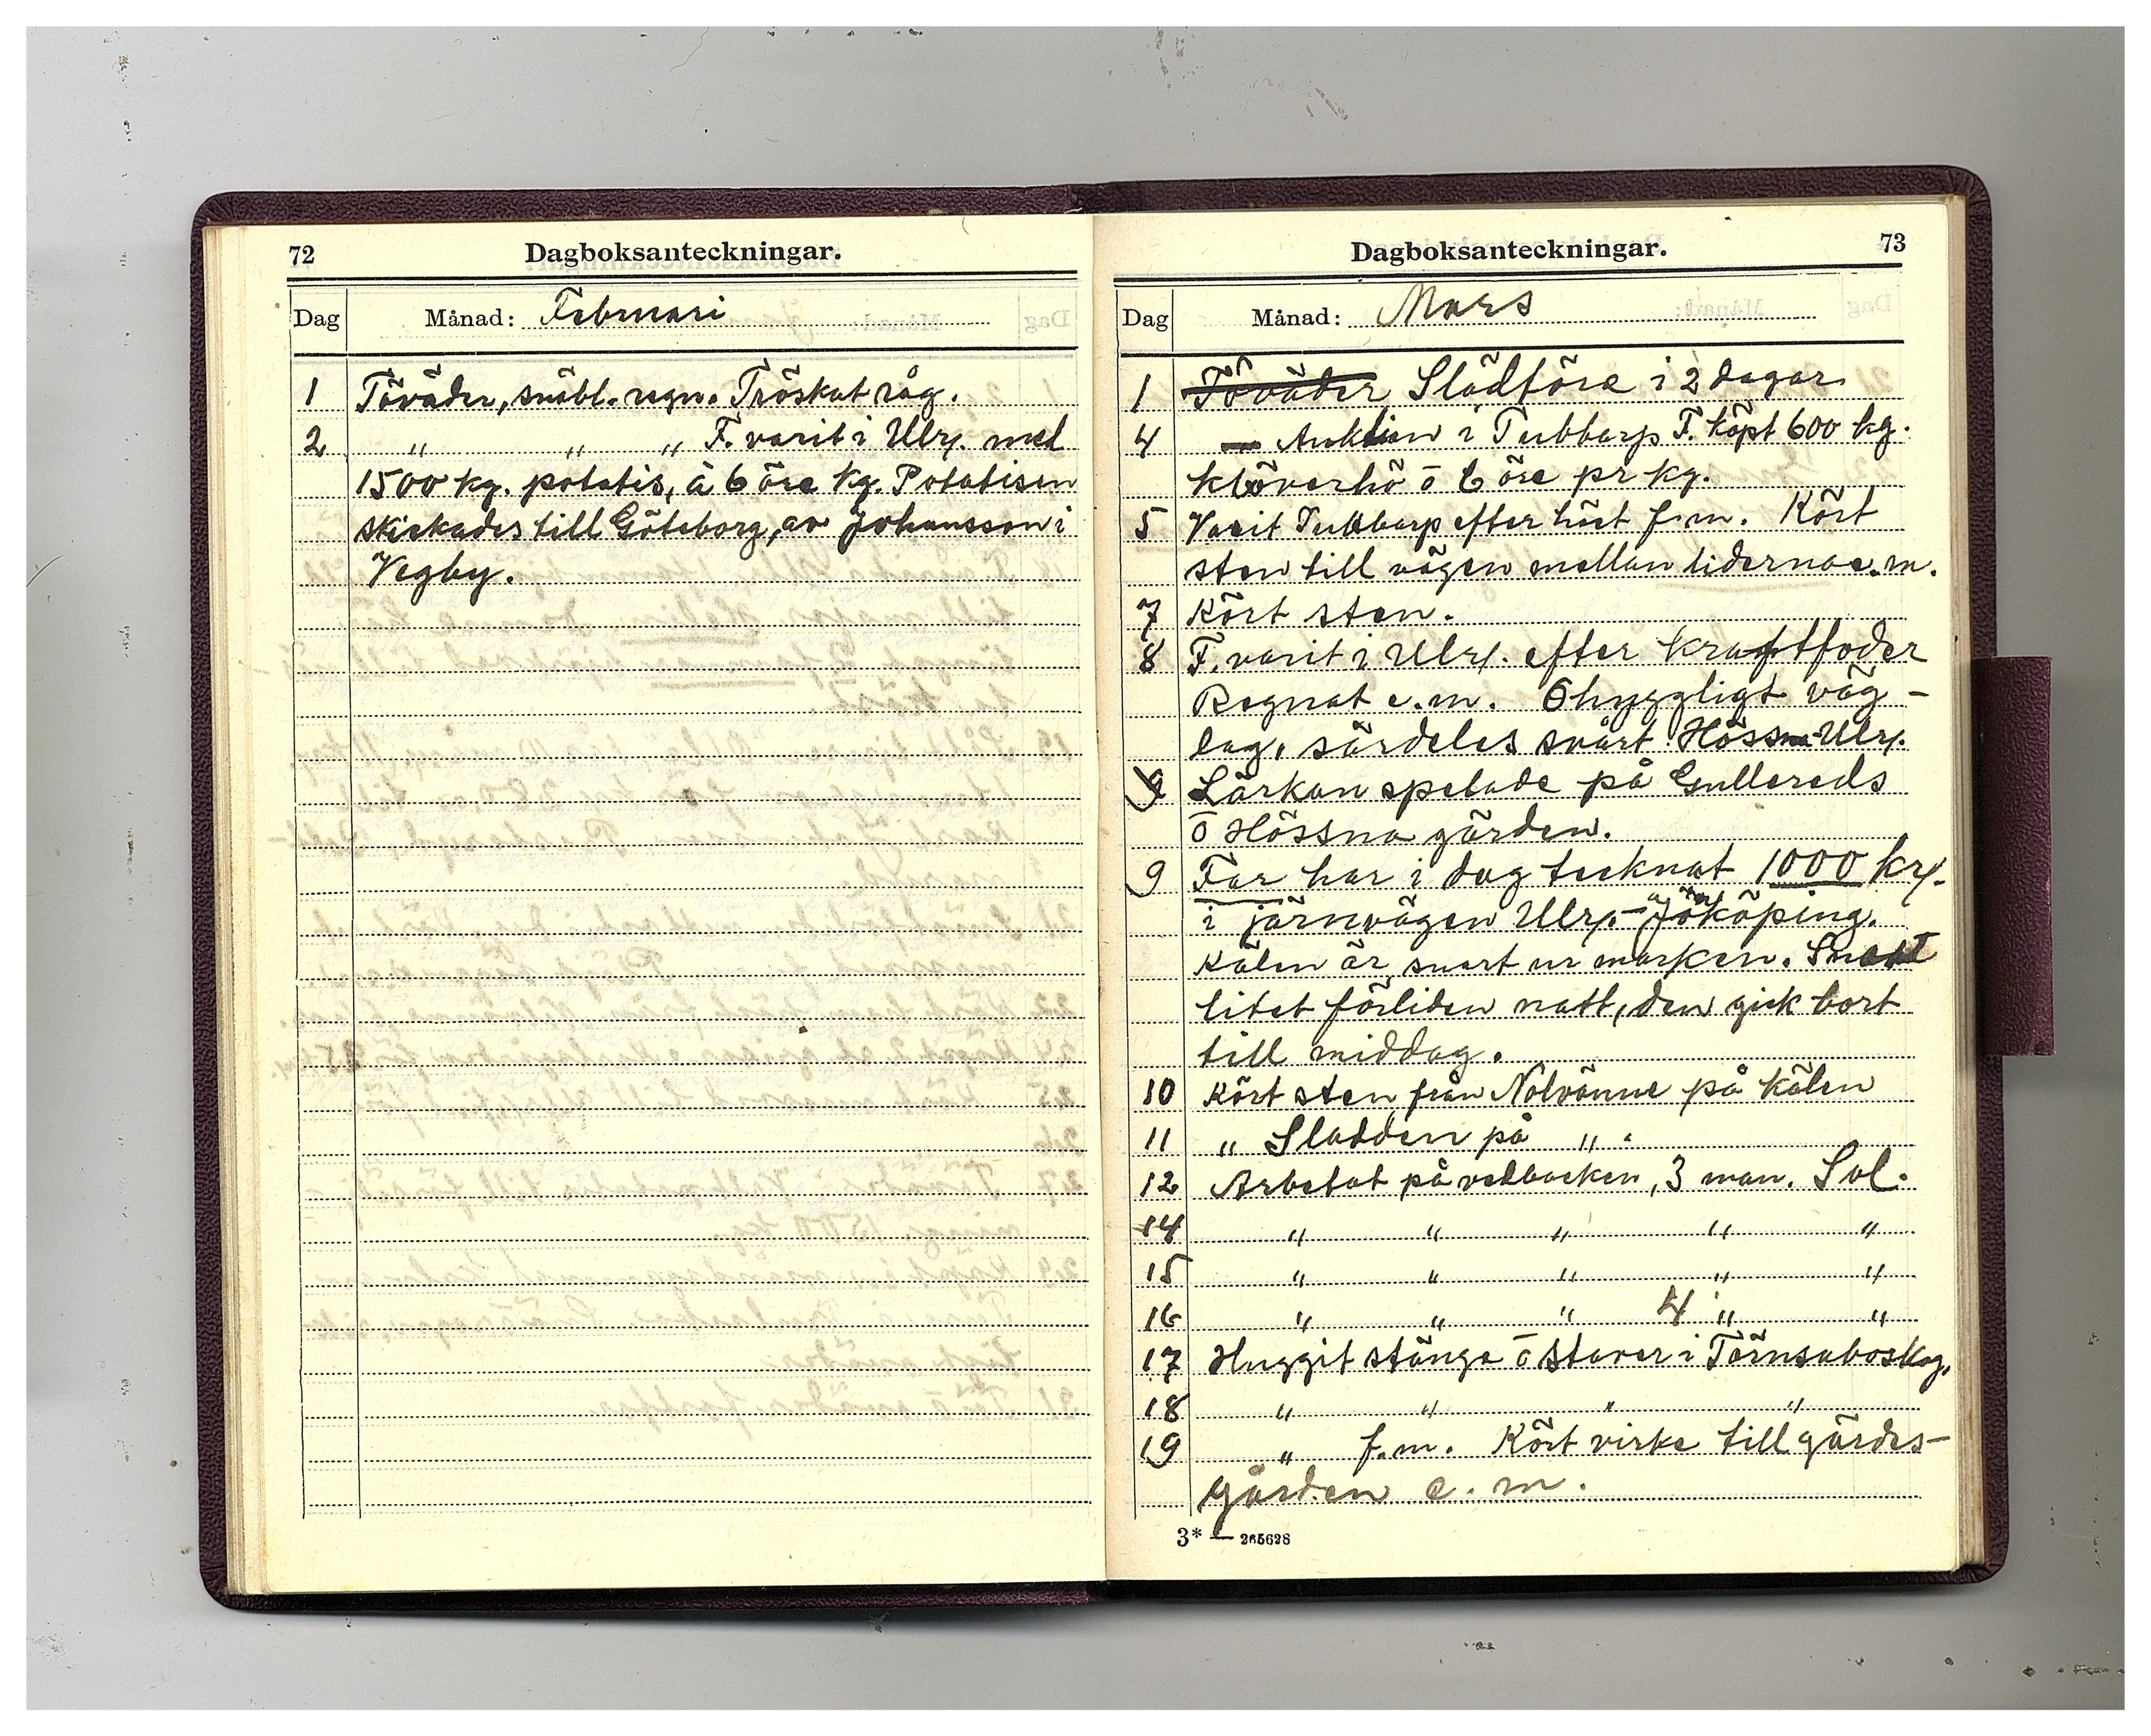 72 Dagboksanteckningar.
Dag Månad: Februari
1 Töväder, snöbl. regn. Tröskat råg.
2 " " " F. varit i Ulrz. med
1500 kg. potatis, à 6 öre kg. Potatisen
skickades till Göteborg, av Johansson i
Vegby.
Dagboksanteckningar. 73
Dag Månad: Mars
1 Töväder Slädföre i 2 dagar.
4 Auktion i Tubbarp F. köpt 600 kg.
klöverhö ō 6 öre pr kg.
5 Varit Tubbarp efter höet f.m. Kört
sten till vägen mellan liderna e.m.
7 Kört sten.
8 F. varit i Ulrz. efter kraftfoder
Regnat e.m. Ohyggligt väg-
lag, särdeles svårt Hössna-Ulrz.
9 Lärkan spelade på Gullereds
ō Hössna gärden.
9 Far har i dag tecknat 1000 kr.
i järnvägen Ulrz.-Jönköping.
Kälen är snart ur marken. Snöat
litet förliden natt, den gick bort
till middag.
10 Kört sten från Nolvänne på kälen
11 " Sladden på " .
12 Arbetat på vedbacken, 3 man. Sol.
14 " " " " "
15 " " " " "
16 " " " 4 " "
17 Huggit stänge ō staver i Törnsaboskog.
18 " " " "
19 " f.m. Kört virke till gärdes-
gården e.m.
3* — 265628